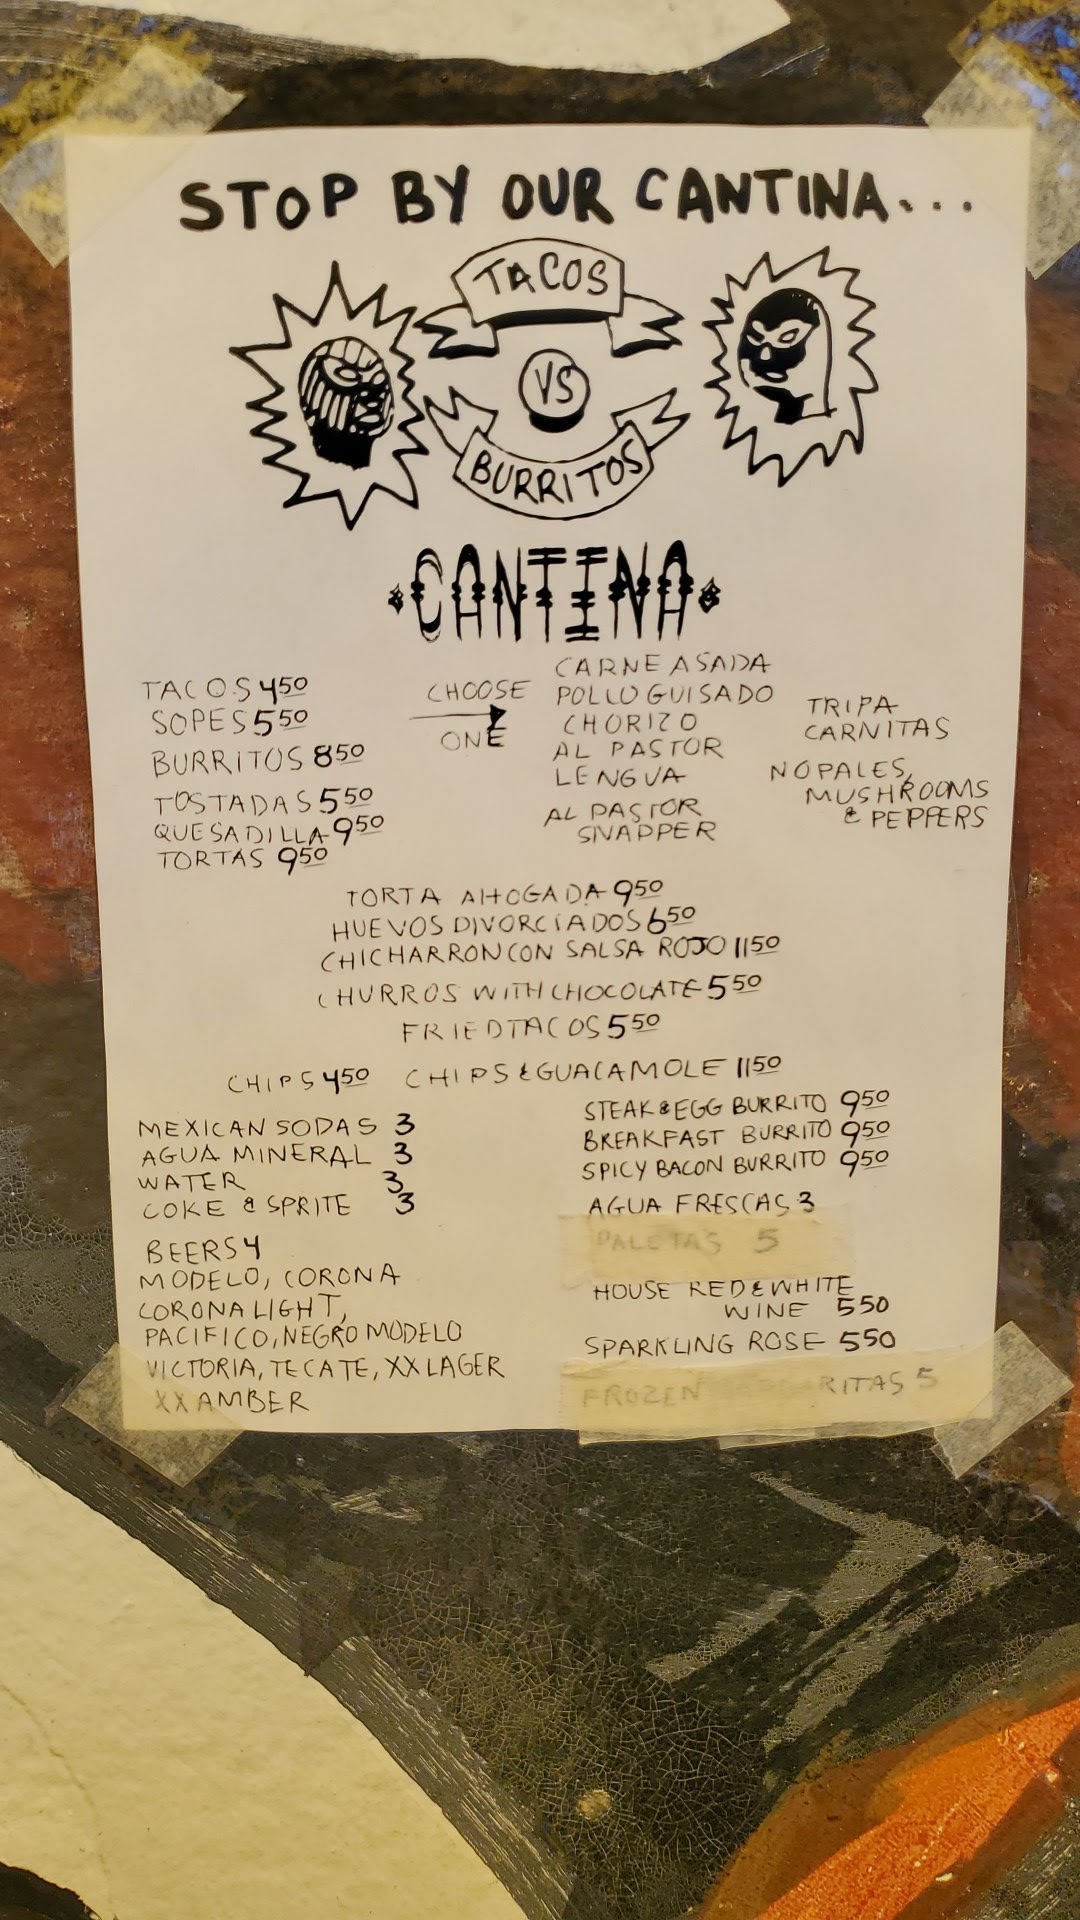 STOP BY OUR CANTINA...
TACOS
VS
BURRITOS
CANTINA
TACOS 450
SOPES 550
BURRITOS 850
TOSTADAS 550
QUESADILLA 950
TORTAS 950
CHOOSE
ONE
CARNE ASADA
POLLO GUISADO
CHORIZO
AL PASTOR
LENGUA
AL PASTOR
SNAPPER
TRIPA
CARNITAS
NOPALES,
MUSHROOMS
& PEPPERS
TORTA AHOGADA 950
HUEVOS DIVORCIADOS 650
CHICHARRON CON SALSA ROJO 1150
CHURROS WITH CHOCOLATE 550
FRIED TACOS 550
CHIPS 450 CHIPS & GUACAMOLE 1150
MEXICAN SODAS 3
AGUA MINERAL 3
WATER 3
COKE & SPRITE 3
BEERS 4
MODELO, CORONA
CORONA LIGHT,
PACIFICO, NEGRO MODELO
VICTORIA, TECATE, XX LAGER
XX AMBER
STEAK & EGG BURRITO 950
BREAKFAST BURRITO 950
SPICY BACON BURRITO 950
AGUA FRESCAS 3
PALETAS 5
HOUSE RED & WHITE
WINE 550
SPARKLING ROSE 550
FROZEN 5